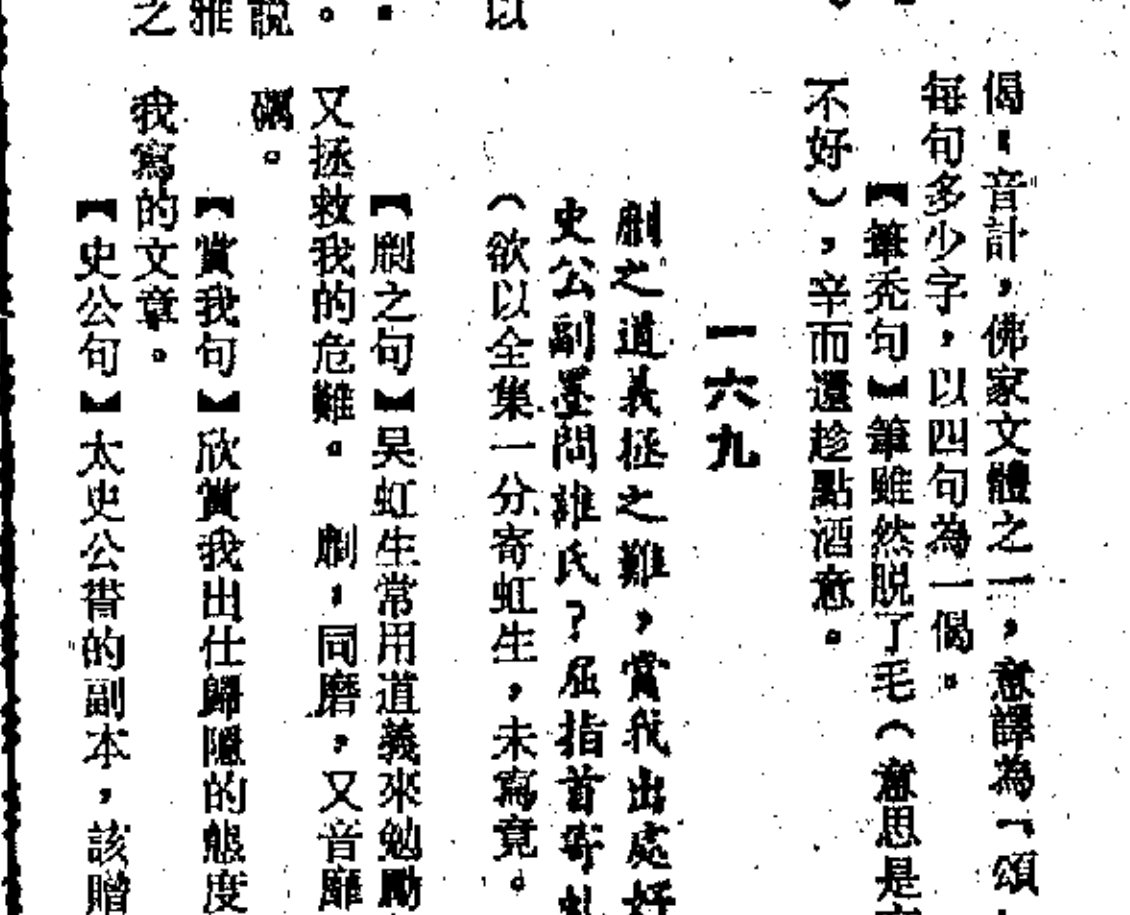 偈：音計，佛家文體之一，意譯為「頌
每句多少字，以四句為一偈。
【筆禿句】筆雖然脱了毛（意思是
不好），辛而還趁點酒意。
一六九
劘之道義拯之難，賞我出處好
史公副墨問誰氏？屈指首寄虹
（欲以全集一分寄虹生，未寫竟。
【劘之句】吴虹生常用道義來勉勵
又拯救我的危難。 劘，同磨，又音靡
礪。
【賞我句】欣賞我出仕歸隱的態度
我寫的文章。
【史公句】太史公書的副本，該贈
以
說
雅
之